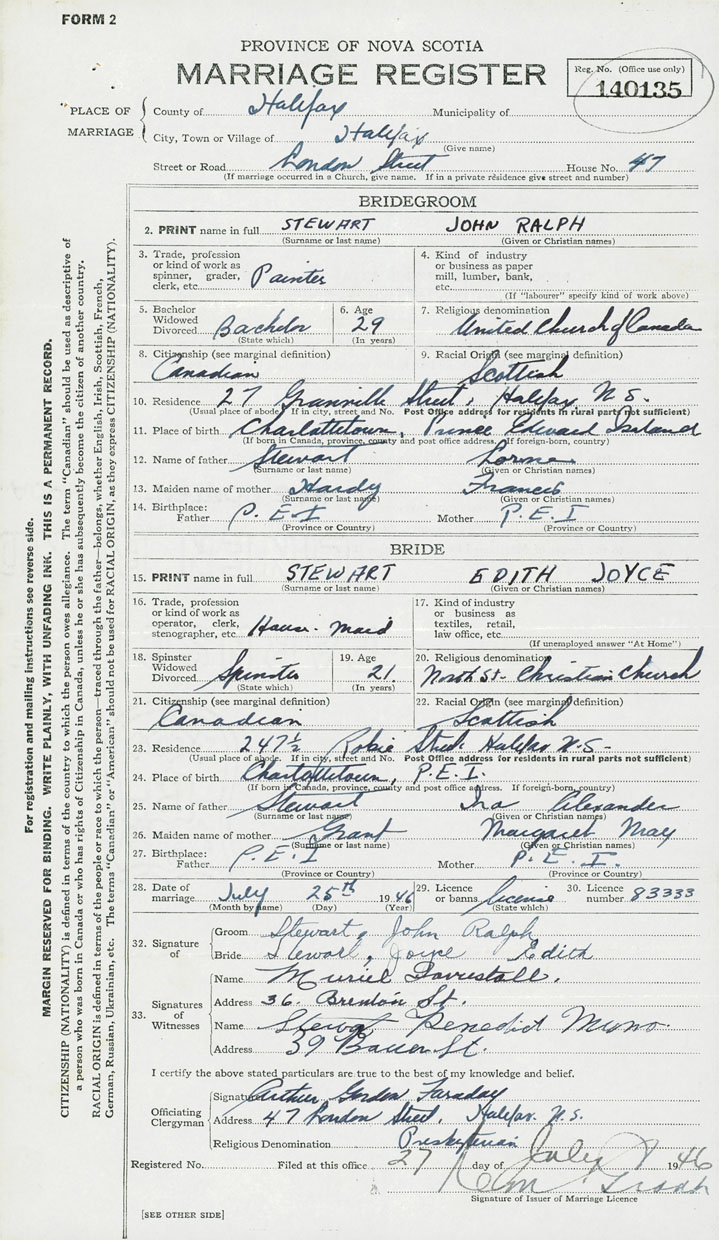 FORM 2
PROVINCE OF NOVA SCOTIA
MARRIAGE REGISTER
Reg. No. (Office use only)
140135
PLACE OF MARRIAGE
County of Halifax Municipality of
City, Town or Village of Halifax
(Give name)
Street or Road London Street House No. 47
(If marriage occurred in a Church, give name. If in a private residence give street and number)
BRIDEGROOM
2. PRINT name in full STEWART JOHN RALPH
(Surname or last name) (Given or Christian names)
3. Trade, profession or kind of work as spinner, grader, clerk, etc. Painter
4. Kind of industry or business as paper mill, lumber, bank, etc.
(If "labourer" specify kind of work above)
5. Bachelor Widowed Divorced Bachelor
(State which)
6. Age 29
(In years)
7. Religious denomination
United Church of Canada
8. Citizenship (see marginal definition)
Canadian
9. Racial Origin (see marginal definition)
Scottish
10. Residence 27 Granville Street, Halifax, N.S.
(Usual place of abode. If in city, street and No. Post Office address for residents in rural parts not sufficient)
11. Place of birth Charlattetown, Prince Edward Island
(If born in Canada, province, county and post office address. If foreign-born, country)
12. Name of father Stewart Lorne
(Surname or last name) (Given or Christian names)
13. Maiden name of mother Hardy Francis
(Surname or last name) (Given or Christian names)
14. Birthplace: Father P.E.I Mother P.E.I
(Province or Country) (Province or Country)
BRIDE
15. PRINT name in full STEWART EDITH JOYCE
(Surname or last name) (Given or Christian names)
16. Trade, profession or kind of work as operator, clerk, stenographer, etc. House-maid
17. Kind of industry or business as textiles, retail, law office, etc.
(If unemployed answer "At Home")
18. Spinster Widowed Divorced Spinster
(State which)
19. Age 21.
(In years)
20. Religious denomination
North St. Christian Church
21. Citizenship (see marginal definition)
Canadian
22. Racial Origin (see marginal definition)
Scottish
23. Residence 247½ Robie Street Halifax N.S.
(Usual place of abode. If in city, street and No. Post Office address for residents in rural parts not sufficient)
24. Place of birth Charlottetown, P.E.I.
(If born in Canada, province, county and post office address. If foreign-born, country)
25. Name of father Stewart Ira Alexander
(Surname or last name) (Given or Christian names)
26. Maiden name of mother Grant Margaret May
(Surname or last name) (Given or Christian names)
27. Birthplace: Father P.E.I Mother P.E.I.
(Province or Country) (Province or Country)
28. Date of marriage July 25th 1946
(Month by name) (Day) (Year)
29. Licence or banns license
(State which)
30. Licence number 83333
32. Signature of
Groom Stewart, John Ralph
Bride Stewart, Joyce Edith
33. Signatures of Witnesses
Name Muriel
Address 36. Brenton St.
Name Stewart Benedict
Address 39 Bauer St.
I certify the above stated particulars are true to the best of my knowledge and belief.
Officiating Clergyman
Signature Arthur Gordon Faraday
Address 47 London Street, Halifax. N.S.
Religious Denomination Presbyterian
Registered No. Filed at this office 27 day of July 1946
Signature of Issuer of Marriage Licence
[SEE OTHER SIDE]
For registration and mailing instructions see reverse side.
MARGIN RESERVED FOR BINDING. WRITE PLAINLY, WITH UNFADING INK. THIS IS A PERMANENT RECORD.
CITIZENSHIP (NATIONALITY) is defined in terms of the country to which the person owes allegiance. The term "Canadian" should be used as descriptive of
a person who was born in Canada or who has rights of Citizenship in Canada, unless he or she has subsequently become the citizen of another country.
RACIAL ORIGIN is defined in terms of the people or race to which the person—traced through the father—belongs, whether English, Irish, Scottish, French,
German, Russian, Ukrainian, etc. The terms "Canadian" or "American" should not be used for RACIAL ORIGIN, as they express CITIZENSHIP (NATIONALITY).